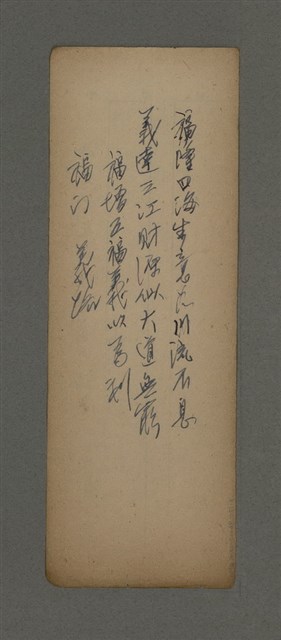 福隆四海生意如川流不息
義達三江財源似大道無窮
福增五福義以為利
福門 義路